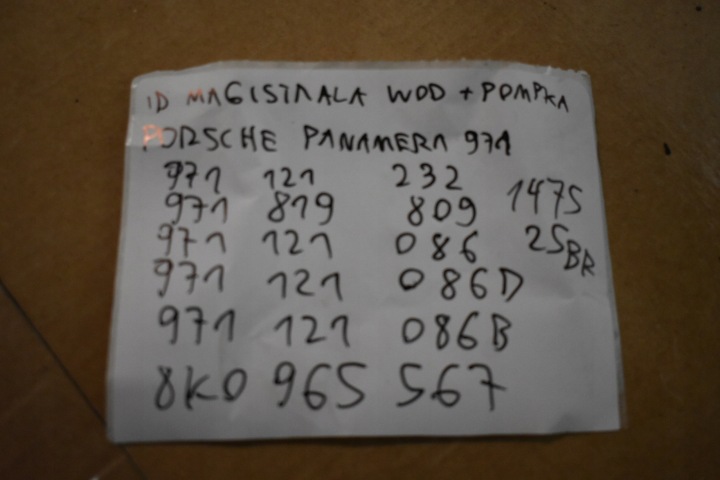 ID MAGISTRALA WOD + POMPKA
PORSCHE PANAMERA 971
971 121 232
971 819 809
971 121 086
971 121 086D
971 121 086B
8K0 965 567
1475
25BR